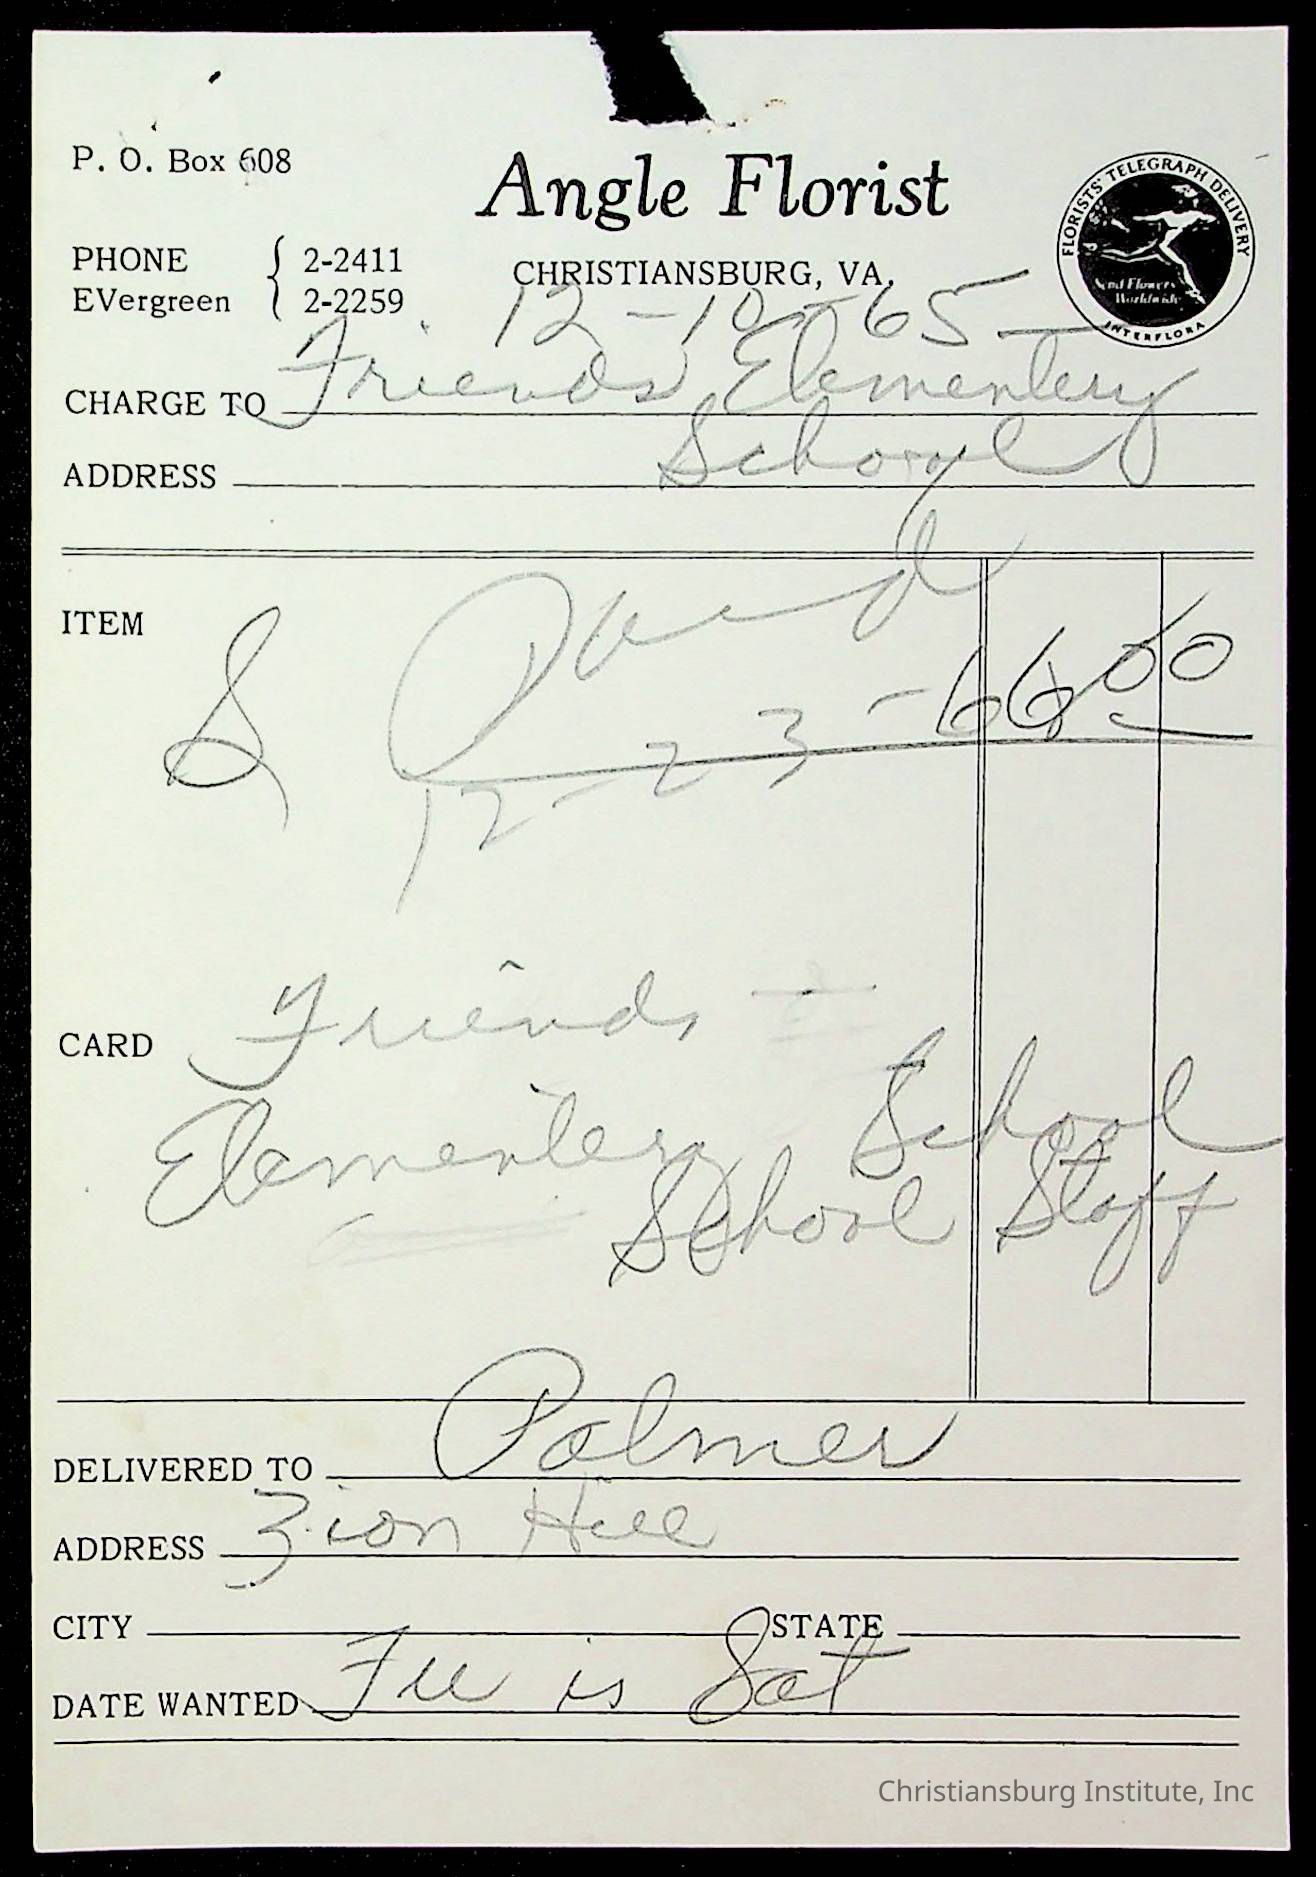 P. O. Box 608
Angle Florist
FLORISTS' TELEGRAPH DELIVERY
Send Flowers
Worldwide
INTERFLORA
PHONE 2-2411
EVergreen 2-2259
CHRISTIANSBURG, VA.
12-10-65
CHARGE TO Friends Elementery
ADDRESS School
ITEM S Paid 6 00
12-23-66
CARD Friends
Elementery School
School Staff
DELIVERED TO Palmer
ADDRESS Zion Hill
CITY STATE
DATE WANTED is Sat
Christiansburg Institute, Inc